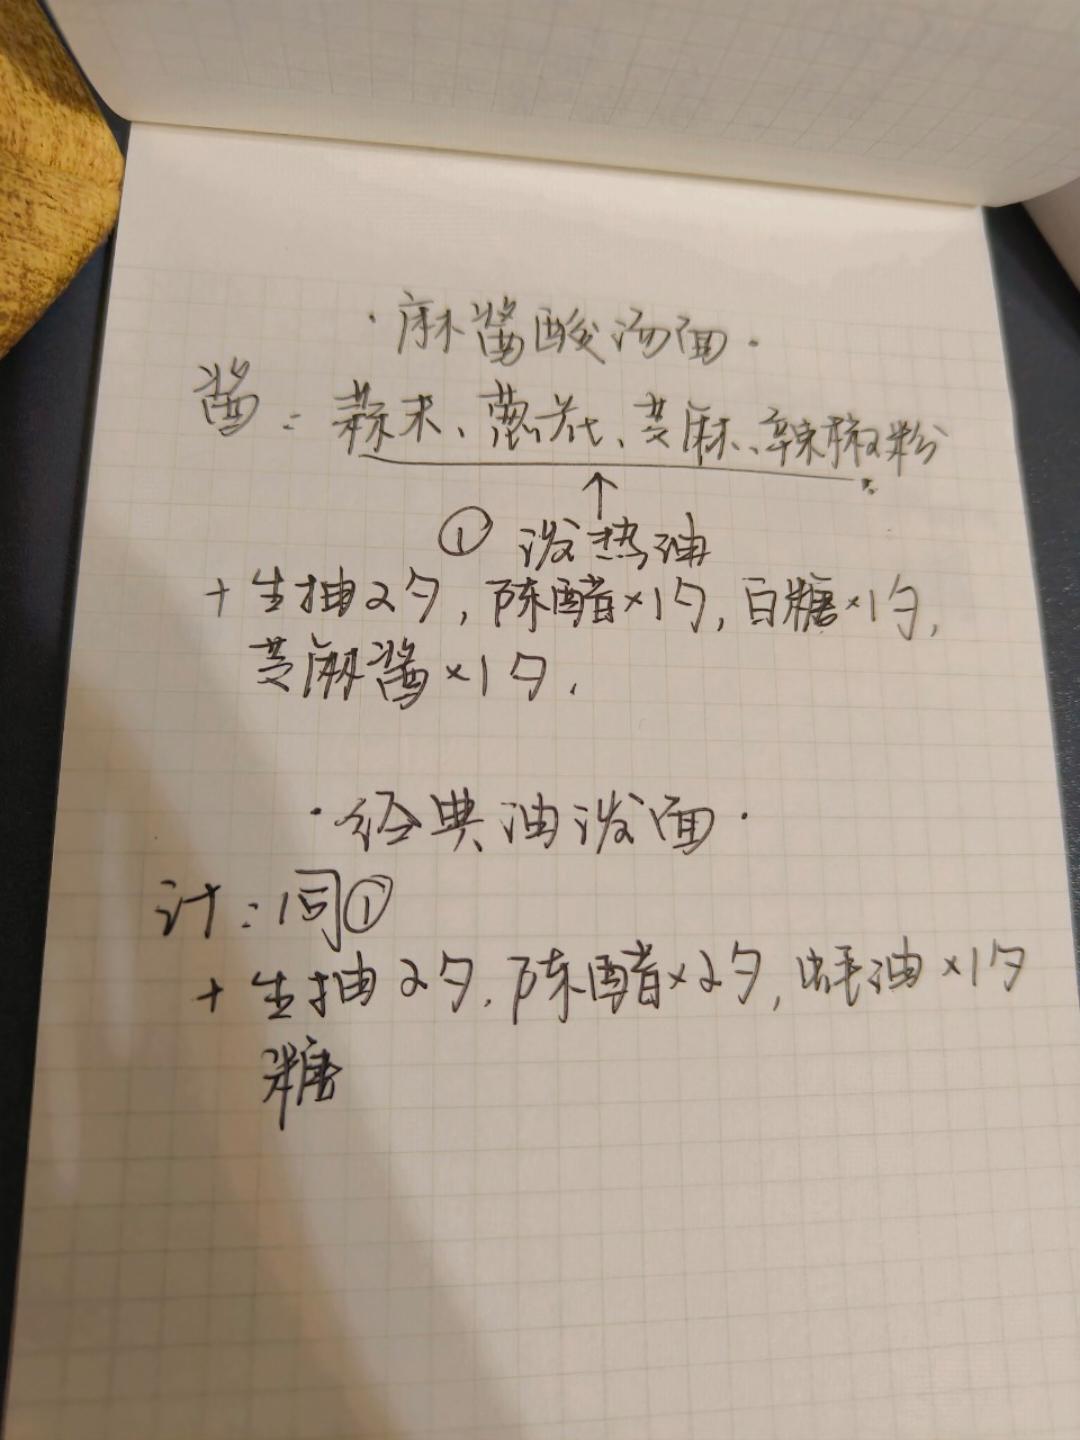 ·麻酱酸汤面·
酱：蒜末、葱花、芝麻、辣椒粉
↑
① 泼热油
+生抽2勺，陈醋×1勺，白糖×1勺，
芝麻酱×1勺.
·经典油泼面·
汁：同①
+生抽2勺.陈醋×2勺，蚝油×1勺
糖